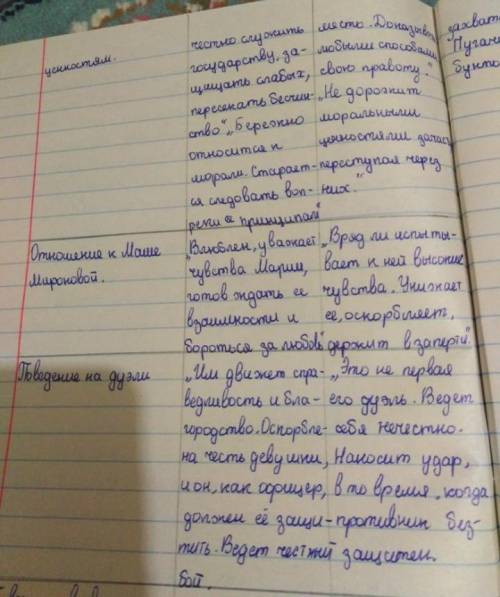 ценностям.
честно служить
государству, за-
щищать слабых,
пересекать бесчин-
ство". „Бережно
относится к
морали. Старает-
ся следовать воп-
реки принципам"
место. Доказывать
любыми способами
свою правоту."
„Не дорожит
моральными
ценностями
переступая через
них."
захват
Пугач
бунто
Отношение к Маше
Мироновой.
„Влюблен, уважает
чувства Марии,
готов ждать её
взаимности и
бороться за любовь"
„Вряд ли испыты-
вает к ней высокие
чувства. Унижает
её, оскорбляет,
держит взаперти".
Поведение на дуэли
„Им движет спра-
ведливость и бла-
городство. Оскорбле-
на честь девушки,
и он, как офицер,
должен её защи-
тить. Ведет честный
бой.
„Это не первая
его дуэль. Ведет
себя нечестно.
Наносит удар,
в то время, когда
противник без-
защитен.